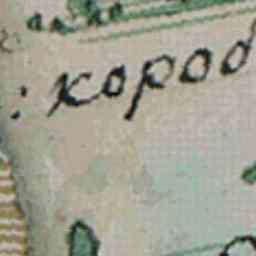 : короб